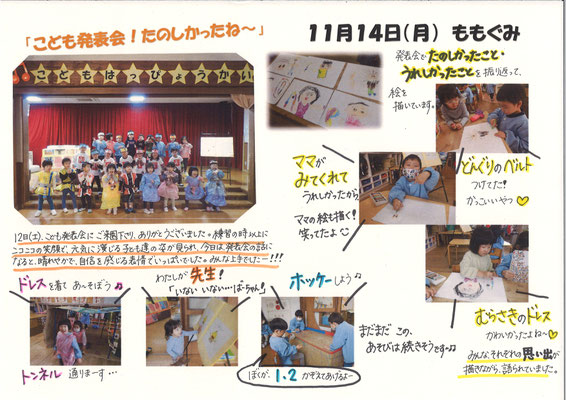 「こども発表会！たのしかったね〜」
11月14日(月) ももぐみ
こどもはっぴょうかい
12日(土)、こども発表会にご来園下さり、ありがとうございました。練習の時以上に
ニコニコの笑顔で、元気に演じる子ども達の姿が見られ、今日は発表会の話に
なると、晴れやかで、自信を感じる表情でいっぱいでした。みんな上手でしたー!!!
発表会でたのしかったこと・
うれしかったことを振り返って、
絵を
描いています。
ママが
みてくれて
うれしかったから
ママの絵も描く！
笑ってたよ
どんぐりのベルト
つけてた！
かっこいいやつ
むらさきのドレス
かわいかったよね〜
みんなそれぞれの思い出が
描きながら、語られていました。
ドレスを着て あ〜そぼう♪
トンネル 通りまーす…
わたしが先生！
「いない いない…ばーちゃん！」
ホッケーしよう♪
ぼくが、1、2 かぞえてあげるよー
まだまだ この、
あそびは続きそうです〜♪